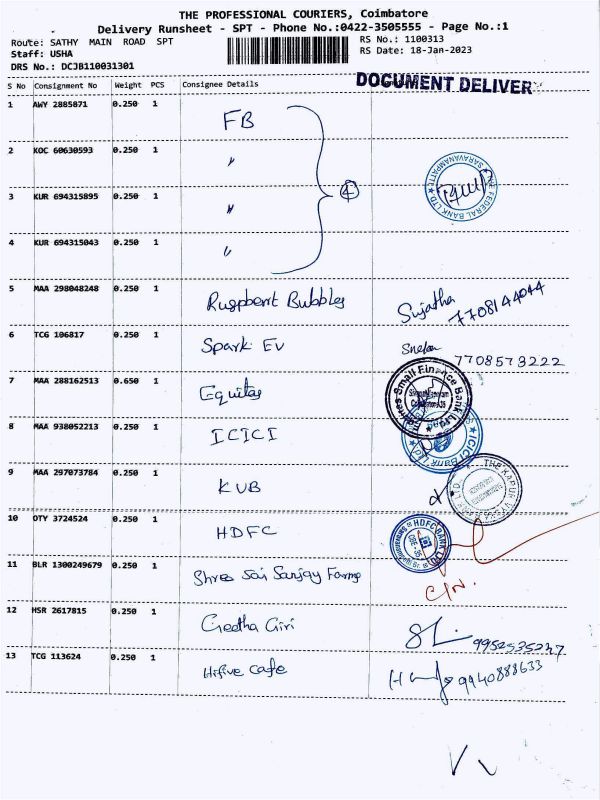 THE PROFESSIONAL COURIERS, Coimbatore
Delivery Runsheet - SPT - Phone No.:0422-3505555 - Page No.:1
Route: SATHY MAIN ROAD SPT
RS No.: 1100313
Staff: USHA
RS Date: 18-Jan-2023
DRS No.: DCJB110031301
S No Consignment No Weight PCS Consignee Details
DOCUMENT DELIVER
1 AWY 2885871 0.250 1 FB
2 KOC 60630593 0.250 1 "
3 KUR 694315895 0.250 1 " 4
THE FEDERAL BANK LTD SARAVANAMPATTI
4 KUR 694315043 0.250 1 "
5 MAA 298048248 0.250 1 Bubbles Sujatha 7708144044
6 TCG 106817 0.250 1 Spark Ev 7708573222
7 MAA 288162513 0.650 1 Equitas
Small Finance Bank Ltd
8 MAA 938052213 0.250 1 ICICI
ICICI Bank
9 MAA 297073784 0.250 1 KVB
THE KARUR VYSYA
10 OTY 3724524 0.250 1 HDFC
HDFC BANK LTD
11 BLR 1300249679 0.250 1 Shree Sai Sanjay Farms
12 HSR 2617815 0.250 1 Geetha Giri
13 TCG 113624 0.250 1 Hifive Cafe 9940888633